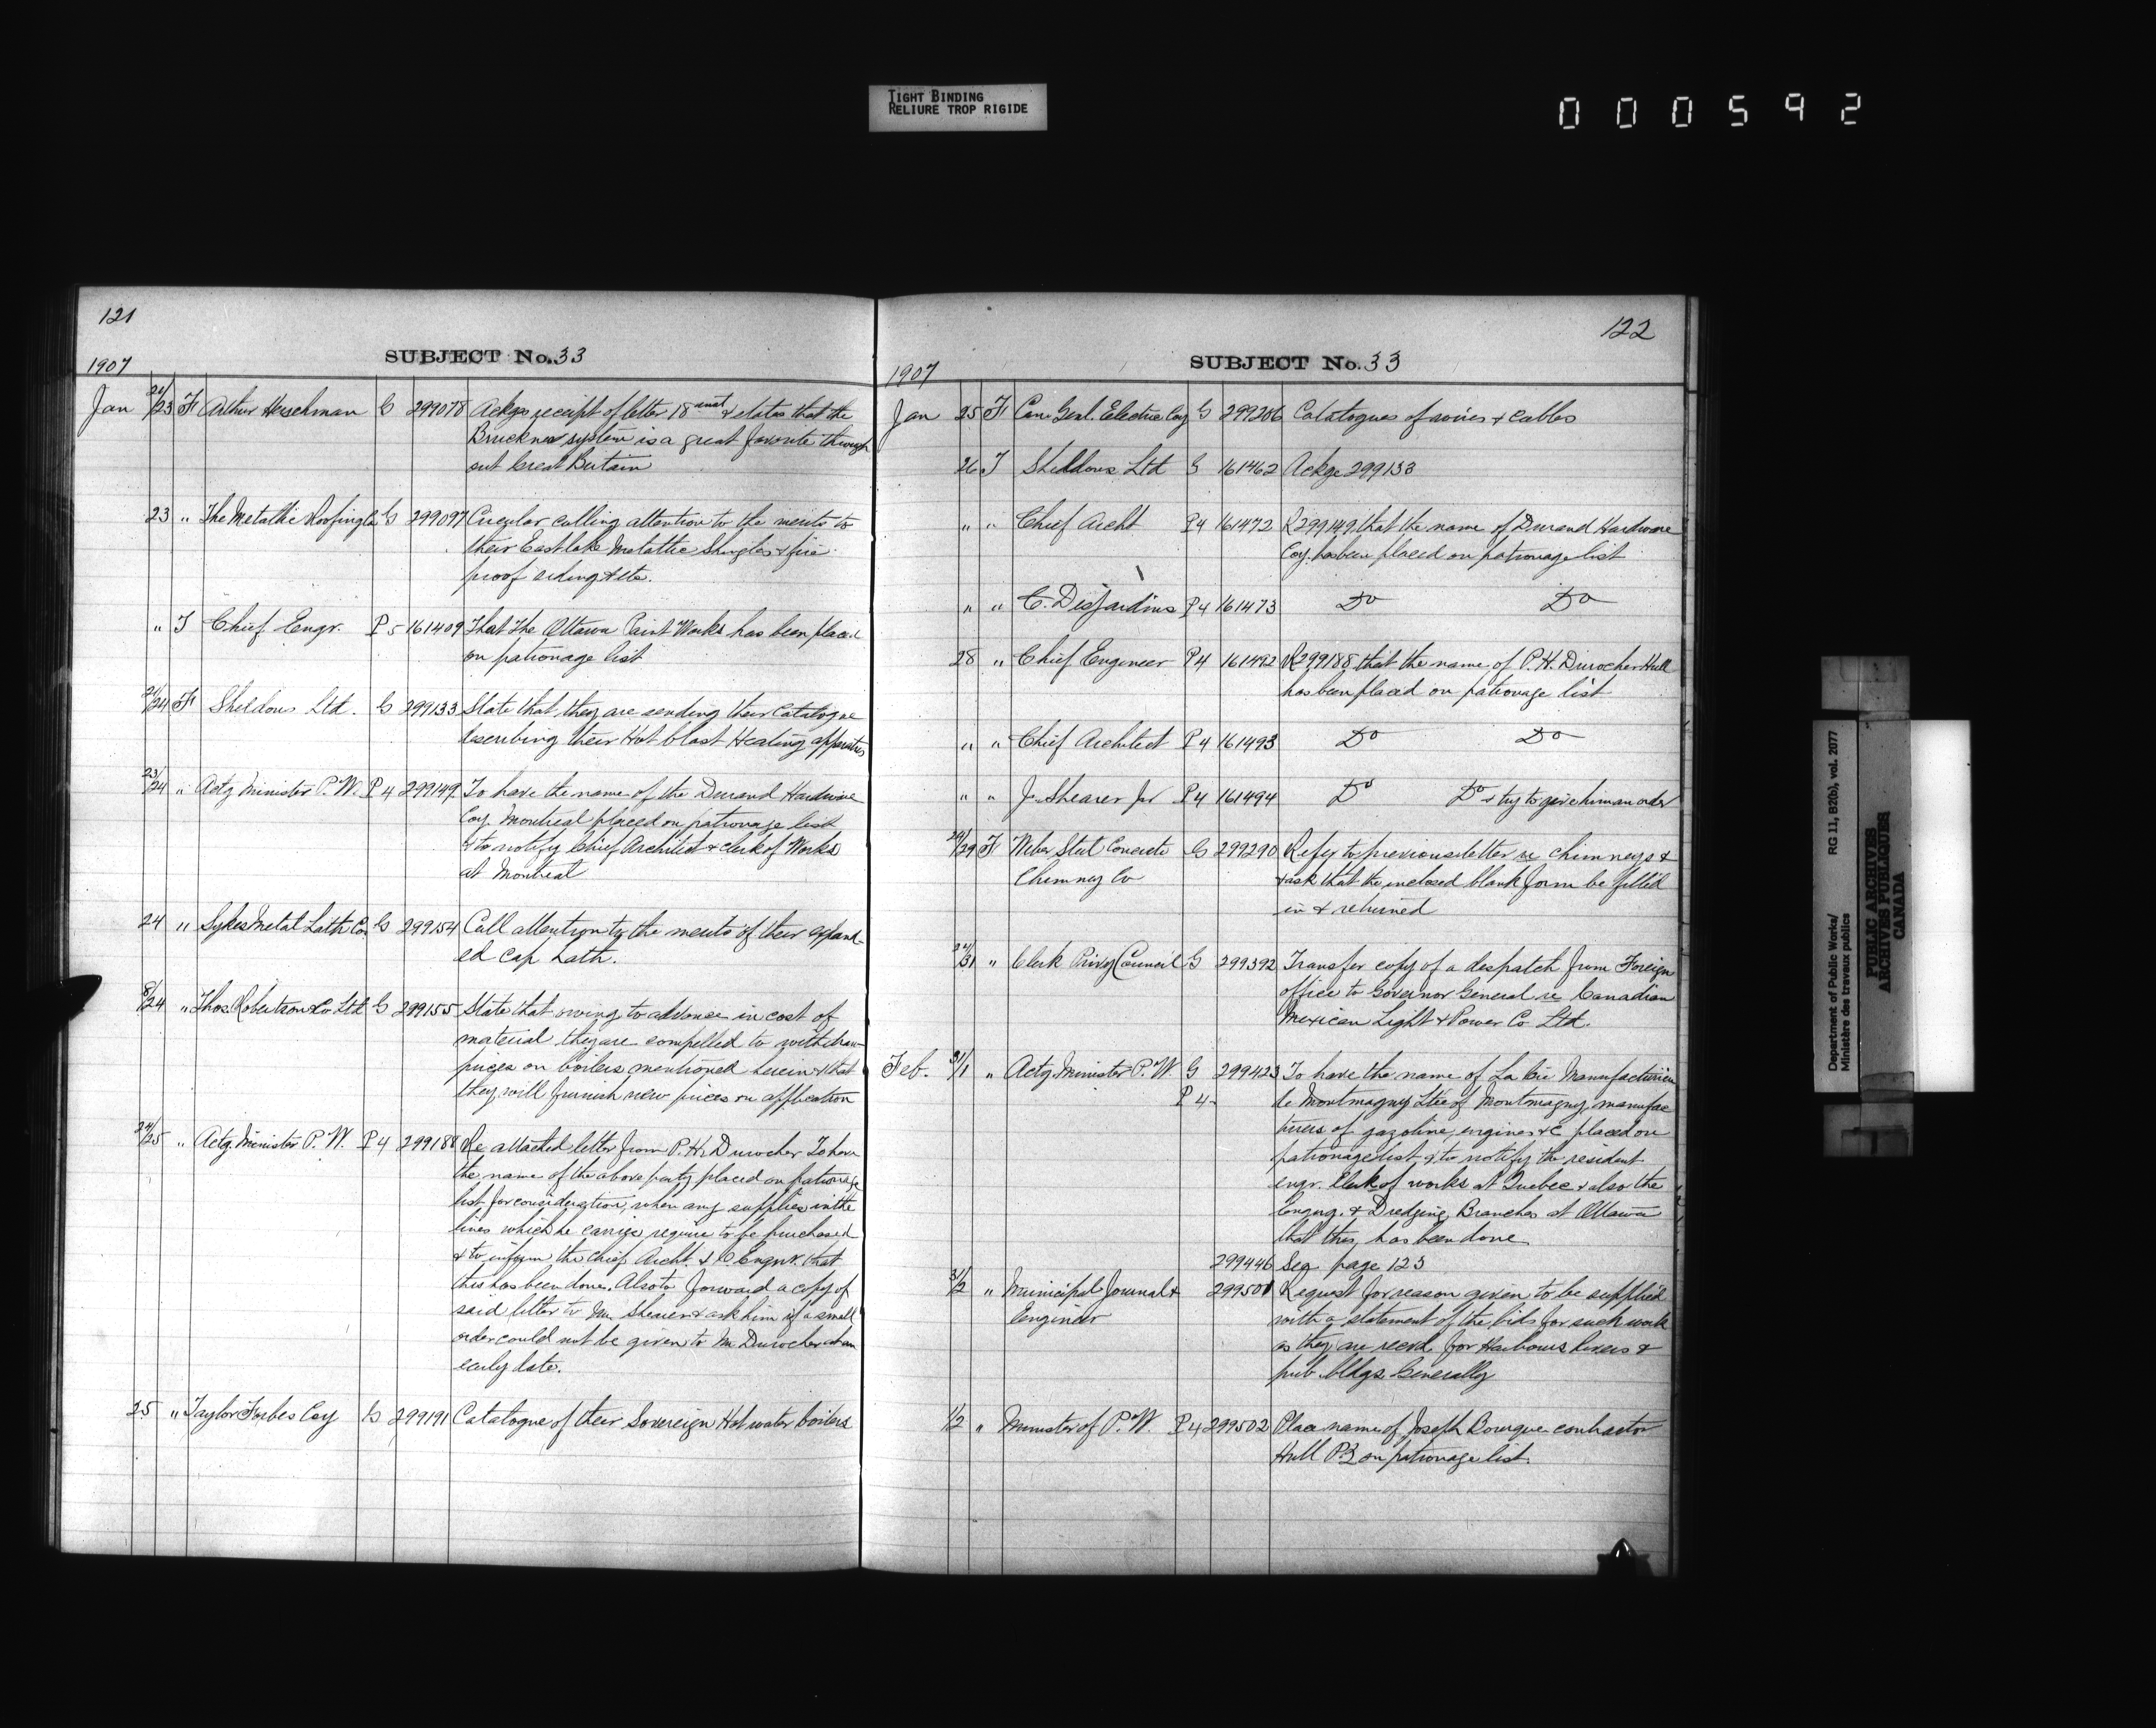 TIGHT BINDING
RELIURE TROP RIGIDE
000592
121
SUBJECT No. 33
1907
Jan 21/23 F Arthur Herschman G 299078 Ackgs receipt of letter 18 inst & states that the
Bruckner system is a great favorite through
out Great Britain
23 " The Metallic Roofing Co G 299097 Circular calling attention to the merits to
their Eastlake Metallic Shingles & fire
proof siding & etc.
" T Chief Engr. P 5 161409 That The Ottawa Paint Works has been placed
on patronage list
21/24 F Sheldons Ltd. G 299133 State that they are sending their catalogue
describing their Hot blast Heating apparatus
23/24 " Actg Minister P.W. P 4 299149 To have the name of the Durand Hardware
Coy. Montreal placed on patronage list
& to notify Chief Architect & clerk of Works
at Montreal
24 " Sykes Metal Lath Co G 299154 Call attention to the merits of their expand-
ed cap Lath.
8/24 " Thos. Robertson & Co Ltd G 299155 State that owing to advance in cost of
material they are compelled to withdraw
prices on boilers mentioned herein & that
they will furnish new prices on application
24/25 " Actg. Minister P.W. P 4 299188 Re attached letter from P.H. Durocher To have
the name of the above party placed on patronage
list for consideration, when any supplies in the
lines which he carries require to be purchased
& to inform the Chief Archt. & C Engnr. that
this has been done. Also to forward a copy of
said letter to Mr. Shearer & ask him if a small
order could not be given to Mr Durocher at an
early date.
25 " Taylor Forbes Coy G 299191 Catalogue of their Sovereign Hot water boilers
122
SUBJECT No. 33
1907
Jan 25 F Can. Genl. Electric Coy G 299206 Catalogues of wires & cables
26 T Sheldons Ltd G 161462 Ackge 299133
" " Chief Archt P 4 161472 R 299149 that the name of Durand Hardware
Coy. has been placed on patronage list
" " C. Desjardins P 4 161473 Do Do
28 " Chief Engineer P 4 161492 R 299188 that the name of P.H. Durocher Hull
has been placed on patronage list
" " Chief Architect P 4 161493 Do Do
" " J. Shearer Jr P 4 161494 Do Do & try to give him an order
29 F Weber Steel Concrete G 299290 Refer to previous letter re chimneys &
Chimney Co & ask that the inclosed blank form be filled
in & returned
31 " Clerk Privy Council G 299392 Transfer copy of a despatch from Foreign
office to Governor General re Canadian
Mexican Light & Power Co Ltd.
Feb. 31/1 " Actg. Minister P.W. G 299423 To have the name of La Cie Manufacturiere
P 4 de Montmagny Ltee of Montmagny, manufac
turers of gazoline, engines &c placed on
patronage list & to notify the resident
engr. Clerk of works at Quebec & also the
Engnrg. & Dredging Branches at Ottawa
that this, has been done
299446 See page 123
31/2 " Municipal Journal & 299501 Request for reason given to be supplied
Engineer with a statement of the bids for such work
as they are recvd. for Harbours Rivers &
pub. bldgs. Generally
1/2 " Minister of P.W. P 4 299502 Place name of Joseph Bourque contractor
Hull P.Q. on patronage list.
Department of Public Works/ RG 11, B2(b), vol. 2077
Ministère des travaux publics
PUBLIC ARCHIVES
ARCHIVES PUBLIQUES
CANADA